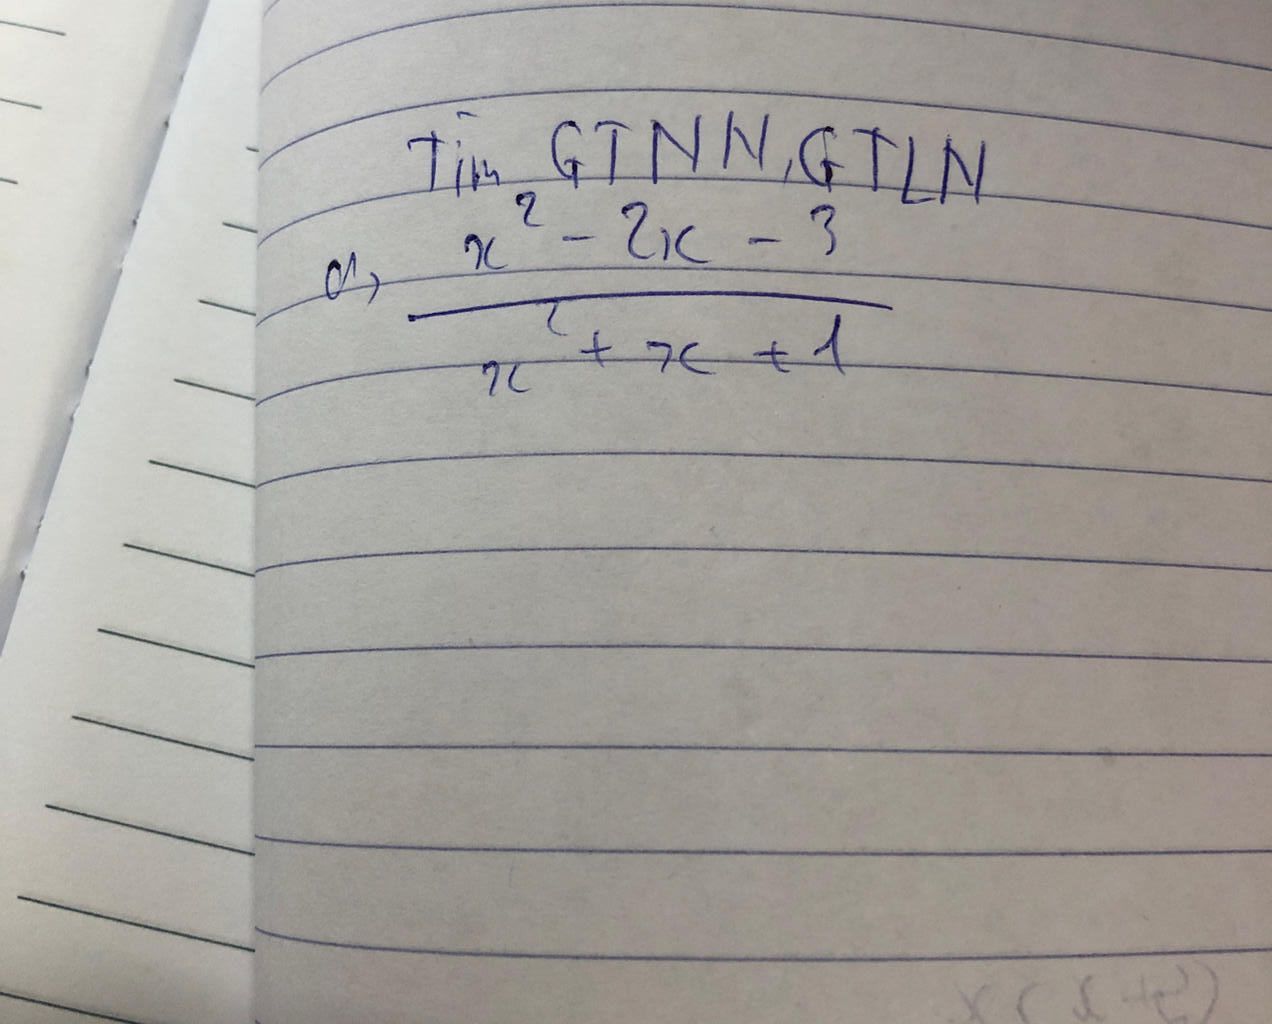 Tìm GTNN, GTLN
a, \frac{x^2 - 2x - 3}{x^2 + x + 1}